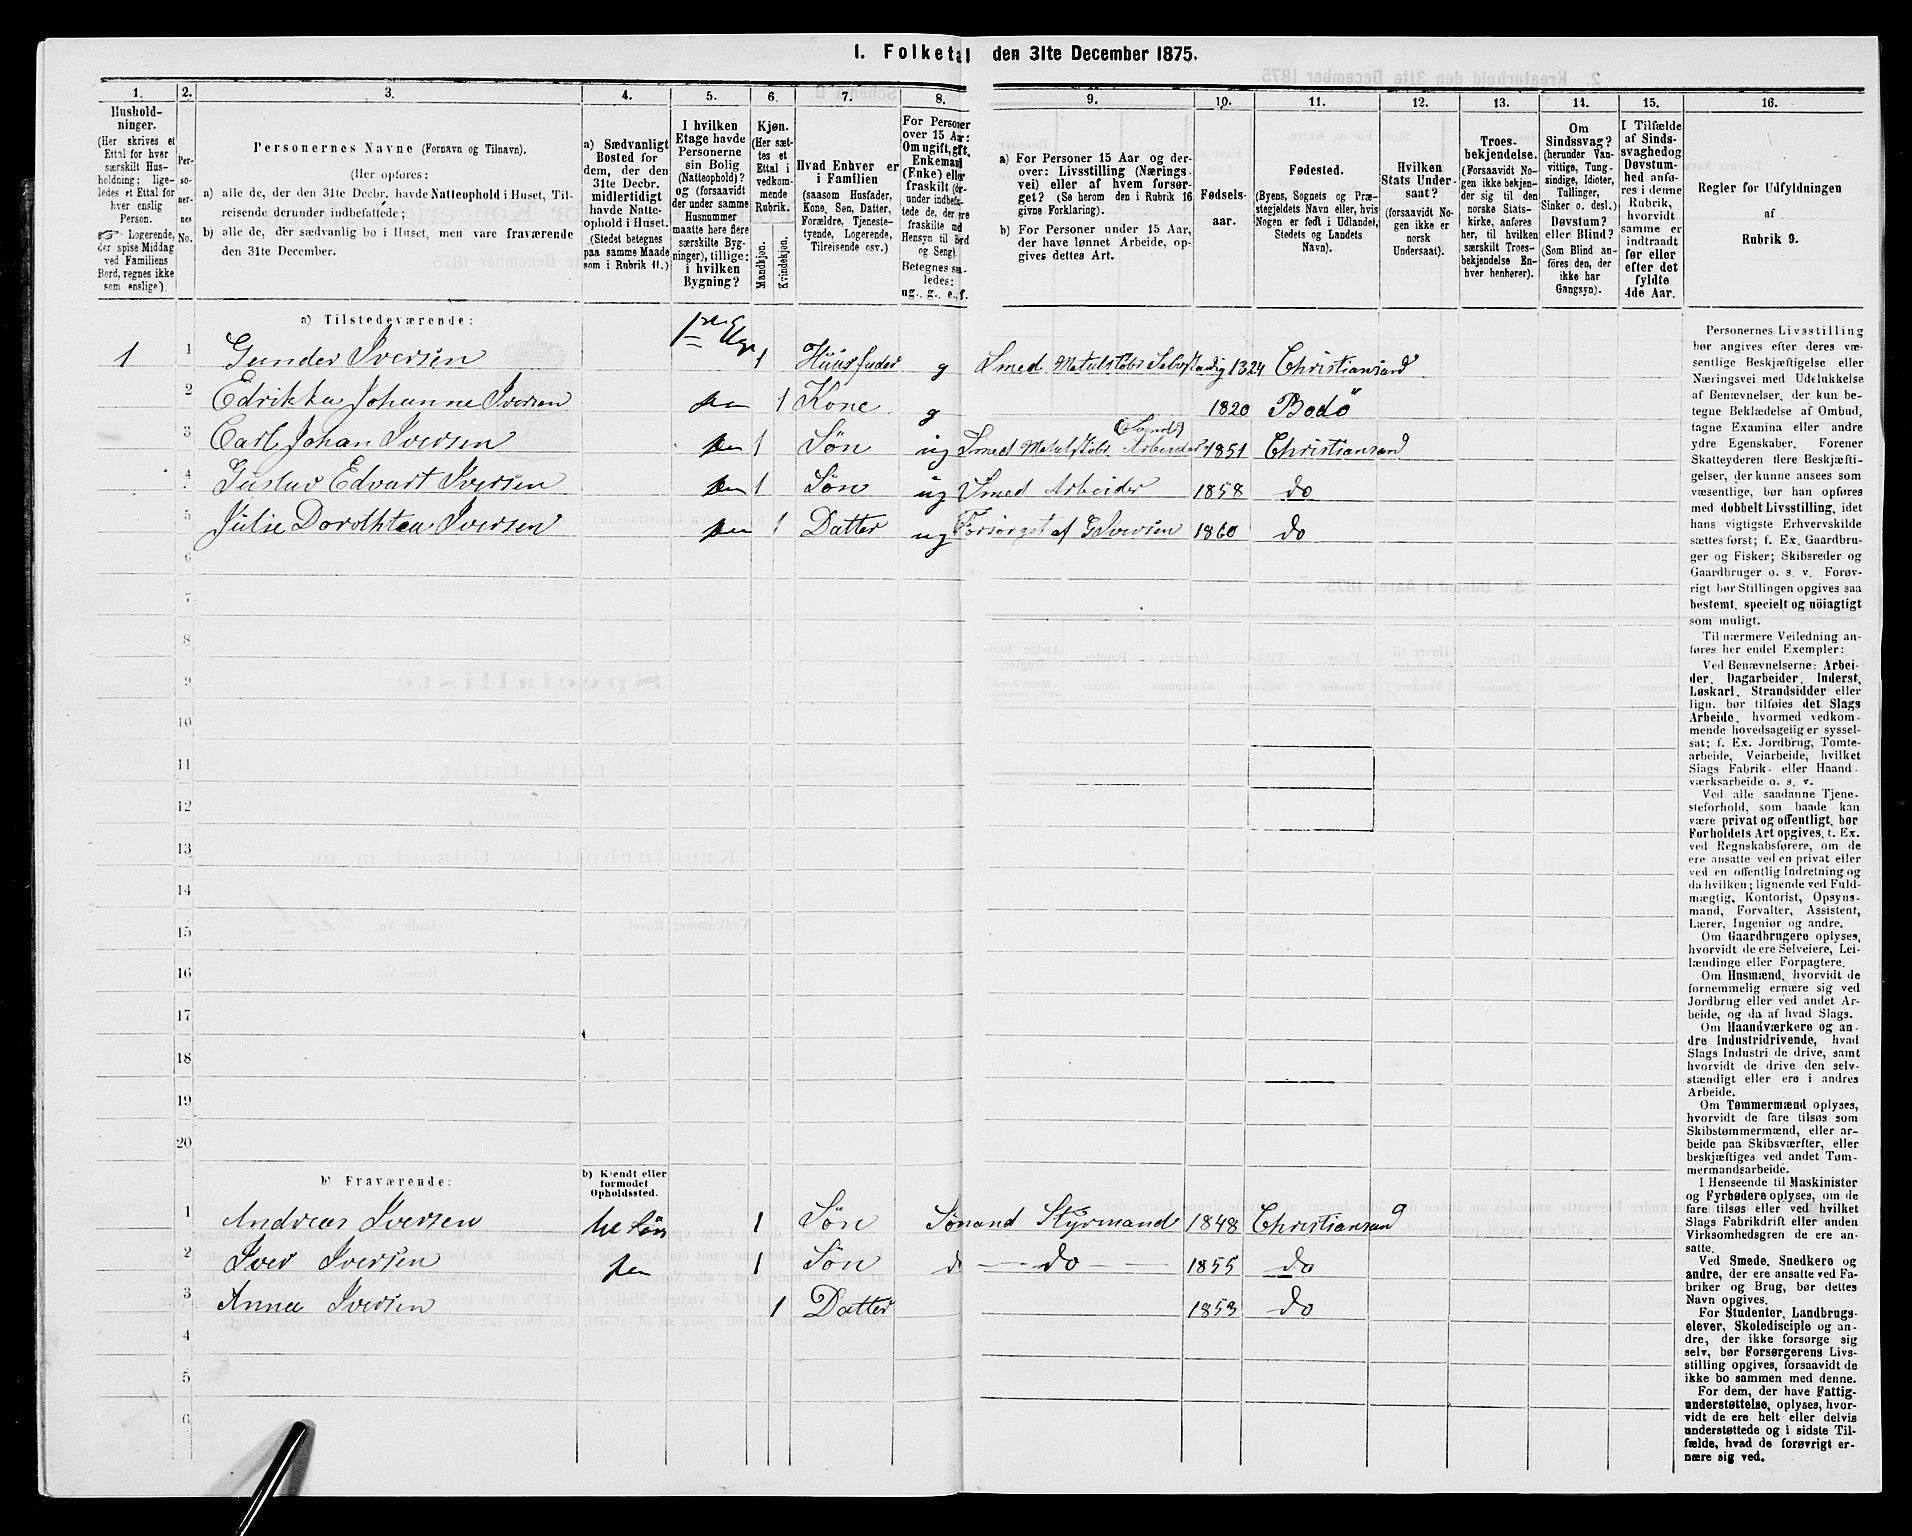 I. Folketal den 31te December 1875.
1. 2. 3. 4. 5. 6. 7. 8. 9. 10. 11. 12. 13. 14. 15. 16.
Hushold-
ninger.
(Her skrives et
Ettal for hver
særskilt Hus-
holdning; lige-
ledes et Ettal for
hver enslig
Person.
☞ Logerende,
der spise Middag
ved Familiens
Bord, regnes ikke
som enslige).
Per-
so-
ner-
nes
No.
Personernes Navne (Fornavn og Tilnavn).
(Her opføres:
a) alle de, der den 31te Decbr. havde Natteophold i Huset, Til-
reisende derunder indbefattede;
b) alle de, der sædvanlig bo i Huset, men vare fraværende
den 31te December.
a) Sædvanligt
Bosted for
dem, der den
31te Decbr.
midlertidigt
havde Natte-
ophold i Huset.
(Stedet betegnes
paa samme Maade
som i Rubrik 11.)
I hvilken
Etage havde
Personerne
sin Bolig
(Natteophold)?
og (forsaavidt
der under samme
Husnummer
maatte høre flere
særskilte Byg-
ninger), tillige:
i hvilken
Bygning?
Kjøn.
(Her sæt-
tes et
Ettal i
vedkom-
mende
Rubrik.
Mandkjøn.
Kvindekjøn.
Hvad Enhver er
i Familien
(saasom Husfader,
Kone, Søn, Datter,
Forældre, Tjeneste-
tyende, Logerende,
Tilreisende osv.)
For Personer
over 15 Aar:
Om ugift, gift,
Enkemand
(Enke) eller
fraskilt (der-
under indbefat-
tede de, der ere
fraskilte med
Hensyn til Bord
og Seng).
Betegnes saa-
ledes:
ug., g., e., f.
a) For Personer 15 Aar og der-
over: Livsstilling (Nærings-
vei) eller af hvem forsør-
get? (Se herom den i Rubrik 16
givne Forklaring).
b) For Personer under 15 Aar,
der have lønnet Arbeide, op-
gives dettes Art.
Fødsels-
aar.
Fødested.
(Byens, Sognets og Præ-
stegjeldets Navn eller, hvis
Nogen er født i Udlandet,
Stedets og Landets
Navn).
Hvilken
Stats Under-
saat?
(forsaavidt No-
gen ikke er
norsk
Undersaat).
Troes-
bekjendelse.
(Forsaavidt No-
gen ikke bekjen-
der sig til den
norske Stats-
kirke, anføres
her, til hvilken
særskilt Troes-
bekjendelse En-
hver henhører).
Om
Sindssvag?
(herunder Van-
vittige, Tung-
sindige, Idioter,
Tullinger,
Sinker o. desl.)
Døvstum?
eller Blind?
(Som Blind an-
føres den, der
ikke har
Gangsyn).
I Tilfælde
af Sinds-
svaghed og
Døvstum-
hed anfø-
res i denne
Rubrik,
hvorvidt
samme er
indtraadt
før eller
efter det
fyldte
4de Aar.
Regler for Udfyldningen
af
Rubrik 9.
a) Tilstedeværende:
1 1 Gunder Iversen 1ste Etge 1 Huusfader g Smed Metalstøber Selvstændig 1824 Christiansand
2 Edrikka Johanne Iversen 1 Kone g 1820 Bodö
3 Carl Johan Iversen 1 Søn ug Smed Metalstøber (Svend) Arbeider 1851 Christiansand
4 Gustav Edvart Iversen 1 Søn ug Smed Arbeider 1858 do
5 Julie Dorothea Iversen 1 Datter ug Forsørget af G Iversen 1860 do
6
7
8
9
10
11
12
13
14
15
16
17
18
19
20
b) Fraværende:
b) Kjendt eller
formodet
Opholdssted.
1 Andreas Iversen 1 Søn Styrmand 1848 Christiansand
2 Iver Iversen 1 Søn do do 1855 do
3 Anna Iversen 1 Datter 1853 do
4
5
6
Personernes Livsstilling
bør angives efter deres væ-
sentlige Beskjæftigelse eller
Næringsvei med Udelukkelse
af Benævnelser, der kun be-
tegne Beklædelse af Ombud,
tagne Examina eller andre
ydre Egenskaber. Forener
Skatteyderen flere Beskjæfti-
gelser, der kunne ansees som
væsentlige, bør han opføres
med dobbelt Livsstilling, idet
hans vigtigste Erhvervskilde
sættes først; f. Ex. Gaardbru-
ger og Fisker; Skibsreder og
Gaardbruger o. s. v. Forøv-
rigt bør Stillingen opgives saa
bestemt, specielt og nöiagtigt
som muligt.
Til nærmere Veiledning an-
føres her endel Exempler:
Ved Benævnelserne: Arbei-
der, Dagarbeider, Inderst,
Løskarl, Strandsidder eller
lign. bør tilføies det Slags
Arbeide, hvormed vedkom-
mende hovedsagelig er syssel-
sat; f. Ex. Jordbrug, Tomte-
arbeide, Veiarbeide, hvilket
Slags Fabrik- eller Haand-
værksarbeide o. s. v.
Ved alle saadanne Tjene-
steforhold, som baade kan
være privat og offentligt, bør
Forholdets Art opgives, t. Ex.
ved Regnskabsførere, om de
ere ansatte ved en privat eller
ved en offentlig Indretning og
da hvilken; lignende ved Fuld-
mægtig, Kontorist, Opsyns-
mand, Forvalter, Assistent,
Lærer, Ingeniør og andre.
Om Gaardbrugere oplyses,
hvorvidt de ere Selveiere, Lei-
lændinge eller Forpagtere.
Om Husmænd, hvorvidt de
fornemmelig ernære sig ved
Jordbrug eller ved andet Ar-
beide, og da af hvad Slags.
Om Haandværkere og an-
dre Industridrivende, hvad
Slags Industri de drive, samt
hvorvidt de drive den selv-
stændigt eller ere i andres
Arbeide.
Om Tømmermænd oplyses,
hvorvidt de fare tilsøs som
Skibstømmermænd, eller ar-
beide paa Skibsværfter, eller
beskjæftiges ved andet Tøm-
mermandsarbeide.
I Henseende til Maskinister
og Fyrbødere oplyses, om de
fare tilsøs eller ved hvilket
Slags Fabrikdrift eller anden
Virksomhedsgren de ere an-
satte.
Ved Smede, Snedkere og
andre, der ere ansatte ved Fa-
briker og Brug, bør dettes
Navn opgives.
For Studenter, Landbrugs-
elever, Skoledisciple og an-
dre, der ikke forsørge sig
selv, bør Forsørgerens Livs-
stilling opgives, forsaavidt de
ikke bo sammen med denne.
For dem, der have Fattig-
understøttelse, oplyses, hvor-
vidt de ere helt eller delvis
understøttede og i sidste Til-
fælde, hvad de forøvrigt er-
nære sig ved.